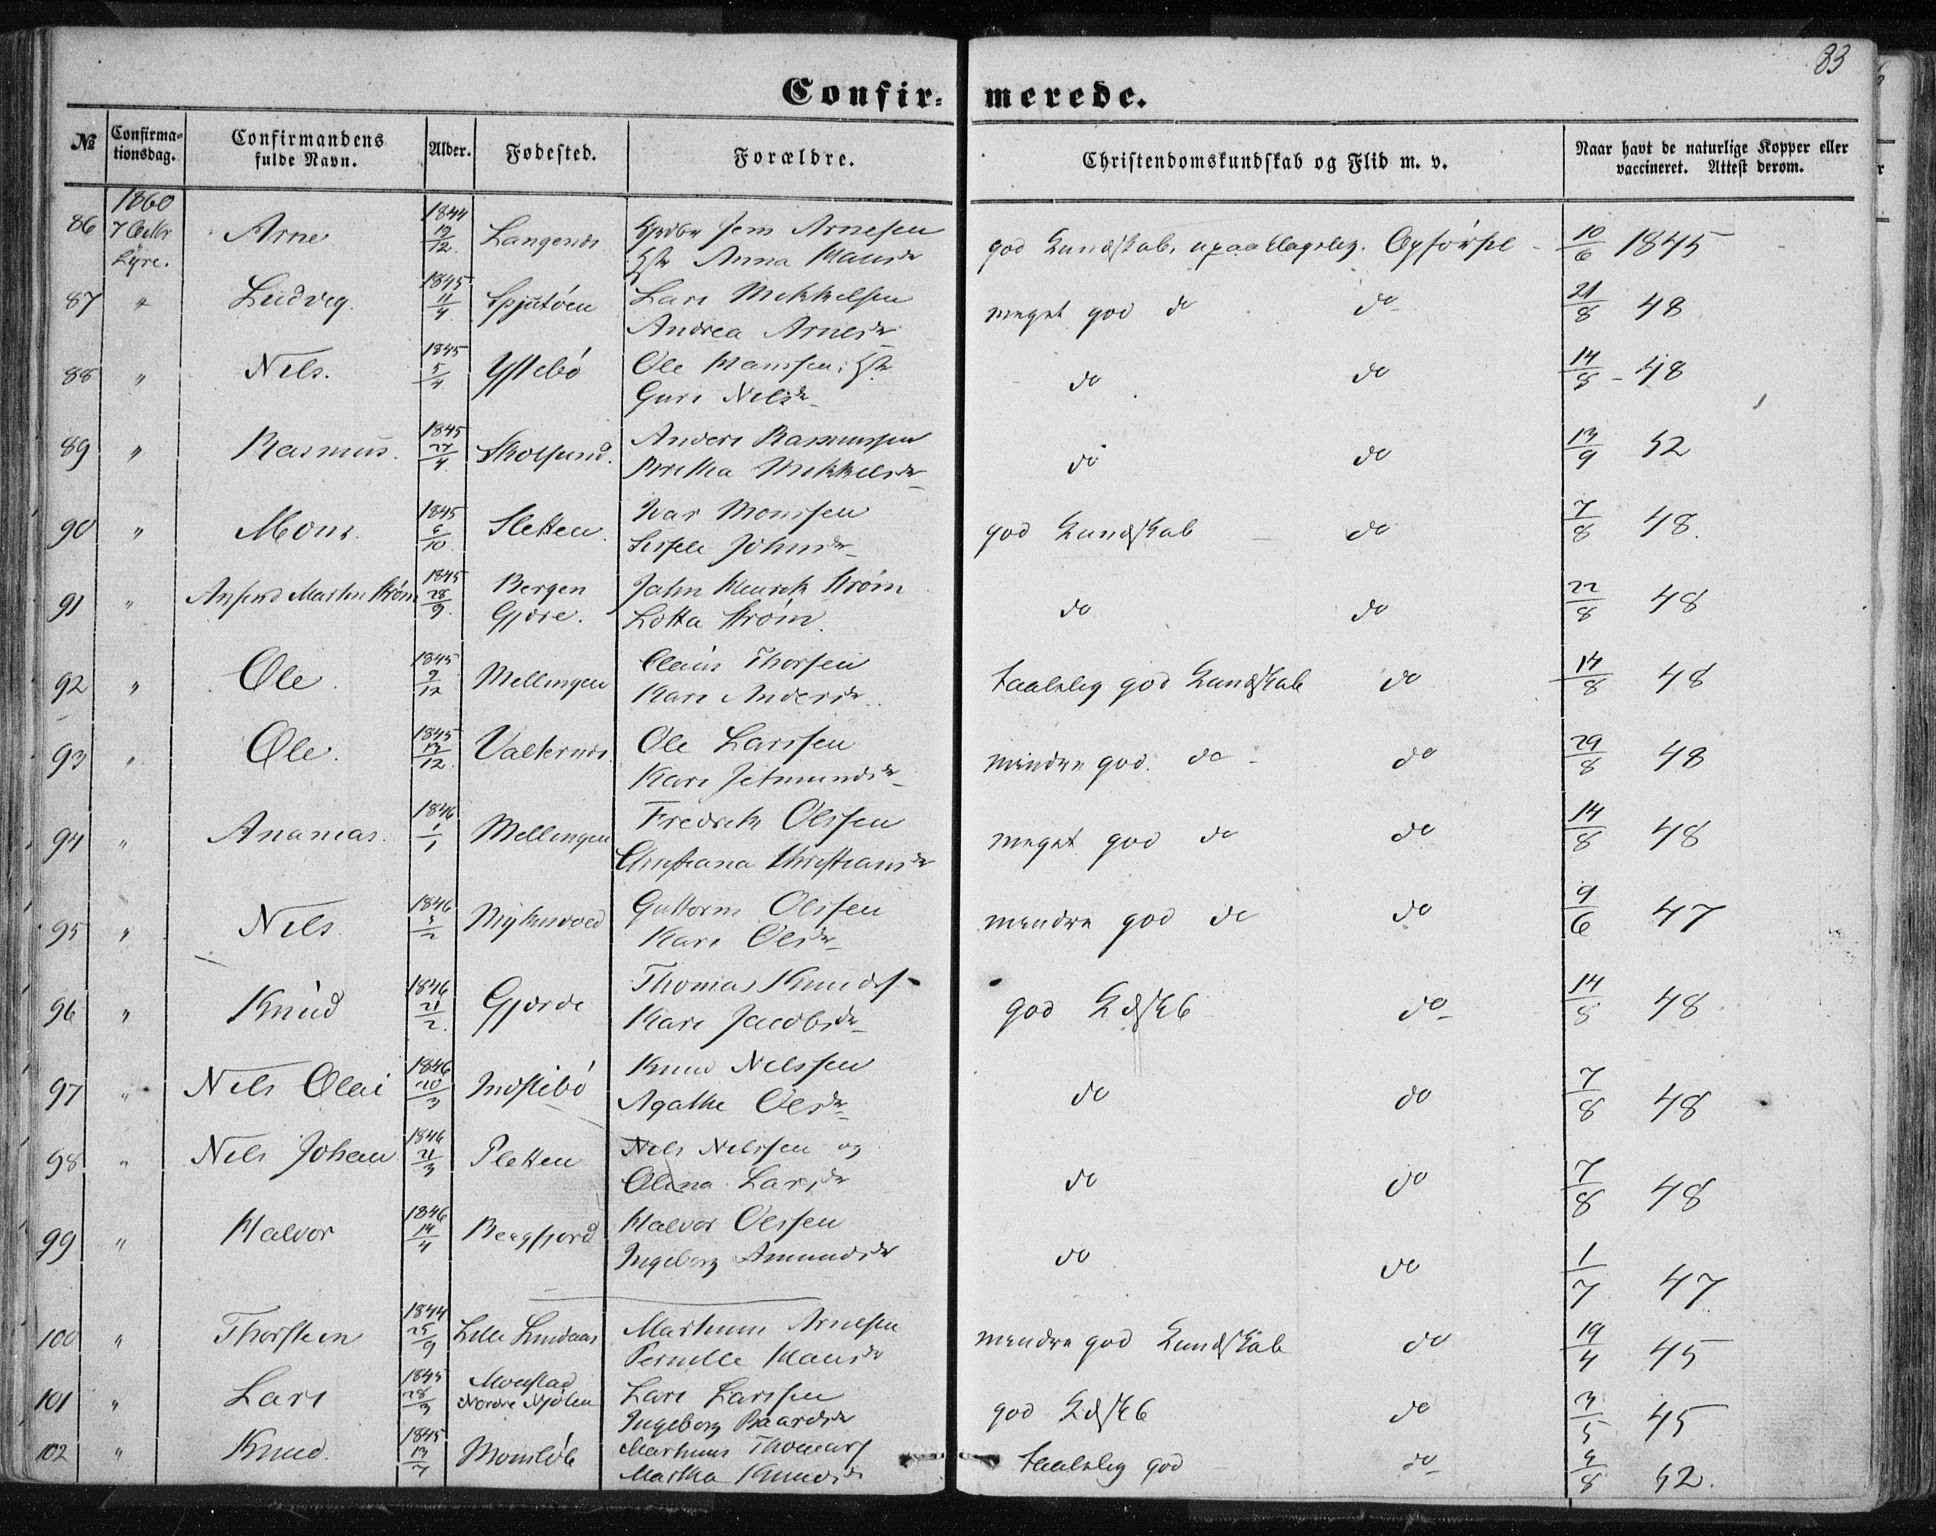 83
Confir- merede.
№ Confirma- tionsdag. Confirmandens fulde Navn. Alder. Fødested. Forældre. Christendomskundskab og Flid m. v. Naar havt de naturlige Kopper eller vaccineret. Attest derom.
86 1860 7 Octbr Lÿre. Arne 1844 12/12 Langenæs Jens Arnesen god Kundskab, upaaklagelig Opførsel - 10/6 1845
Anna Hansdr
87 " Ludvig 1845 /4 Spjutøen Lars Mikkelsen meget god do do 21/8 48
Andrea Arnesdr
88 " Nels. 1845 5/4 Ystebø Ole Hanssen do do 14/8 - 48
Guri Nelsdr
89 " Rasmus. 1845 27/4 Skolsund. Anders Rasmussen do do 13/9 52
Britha Mikkelsdr
90 " Mons. 1845 6/10 Sletten. Ivar Monssen god Kundskab - do 7/8 48.
Sissele Johnsdr
91 " Martin Strøm 1845 28/9. Bergen Jahn Henrik Strøm do do 22/8 48
Gjøre. Lotta Strøm.
92 " Ole. 1845 9/12 Mellingen Olaus Thorsen taalelig god Kundskab do 14/8 48
Kari Andersdr
93 " Ole. 1845 13/12 Valternes Ole Larssen mindre god. do - do 29/8 48
Kari Jetmundsdr
94 " Ananias. 1846 1/1 Mellingen Fredrik Olssen meget god do do 14/8 48
Christiana Christiansdr
95 " Nels. 1846 /2 Guttorm Olssen mindre god do do 9/6 47
Kari Olsdr
96 " Knud 1846 21/2. Gjerde Thomas Knuds god Kdskb do 14/8 48
Kari Jacobsdr
97 " Nels Olai 1846 20/3 Indstebø Knud Nelssen do do 7/8 48
Agathe Olsdr
98 " Nels Johan 1846 21/3 Sletten Nels Nelssen og do do 7/8 48
Olina Larsdr
99 " Halvor 1846 14/4 Bergfjord Halvor Olssen do do 1/7 47
Ingeborg Amundsdr
100 " Thorstein 1844 25/9 Lille Lindaas Arnesen mindre god Kundskab do 19/4 45
Pernille Hansdr
101 " Lars 1845 28/3 Lars Larssen god Kdskb do 3/5 45
Nordre Ingeborg Baardsdr
102 " Knud. 1845 13/7 Monsløb Thomass taalelig god do /8 52.
Martha Knudsdr